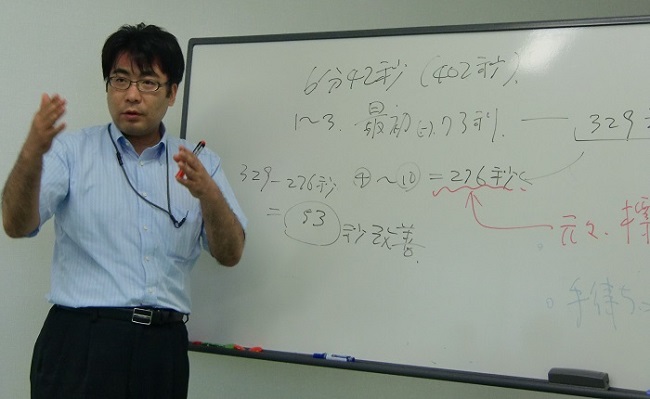 6分42秒 (402秒).
1~3. 最初の73秒. — 329
329-276秒 ④~⑩ = 276秒
= 53 秒改善.
元々、
手待ち